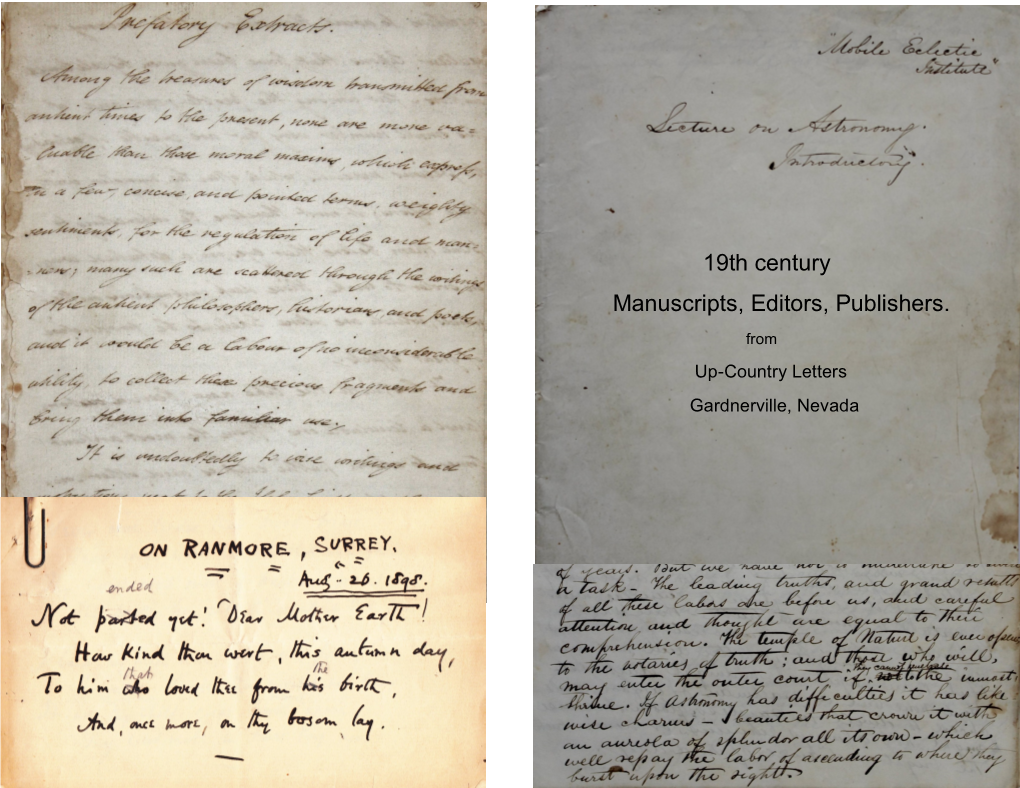 Prefatory Extracts.
Among the treasures of wisdom transmitted from
antient times to the present, none are more va-
luable than those moral maxims, which express,
in a few, concise, and pointed terms, weighty
sentiments, for the regulation of life and man-
-ners; many such are scattered through the writings
of the antient philosophers, historians and poets,
and it would be a labour of no inconsiderable
utility, to collect these precious fragments and
bring them into familiar use.
It is undoubtedly to wise writings and
ON RANMORE, SURREY.
Aug. 26. 1898.
ended
Not parted yet! Dear Mother Earth!
How kind thou wert, this autumn day,
that the
To him who loved thee from his birth,
And, once more, on thy bosom, lay.
"Mobile Eclectic
Institute"
Lecture on Astronomy.
Introductory.
19th century
Manuscripts, Editors, Publishers.
from
Up-Country Letters
Gardnerville, Nevada
of years. But we have not to undertake so
a task - The leading truths, and grand results
of all these labors are before us, and careful
attention and thought are equal to their
comprehension. The temple of Nature is ever open
to the votaries of truth; and those who will,
they cannot penetrate
may enter the outer court if the inmost
shrine. If Astronomy has difficulties it has like
wise charms - beauties that crown it with
an aureola of splendor all its own - which
well repay the labor of ascending to where they
burst upon the sight.